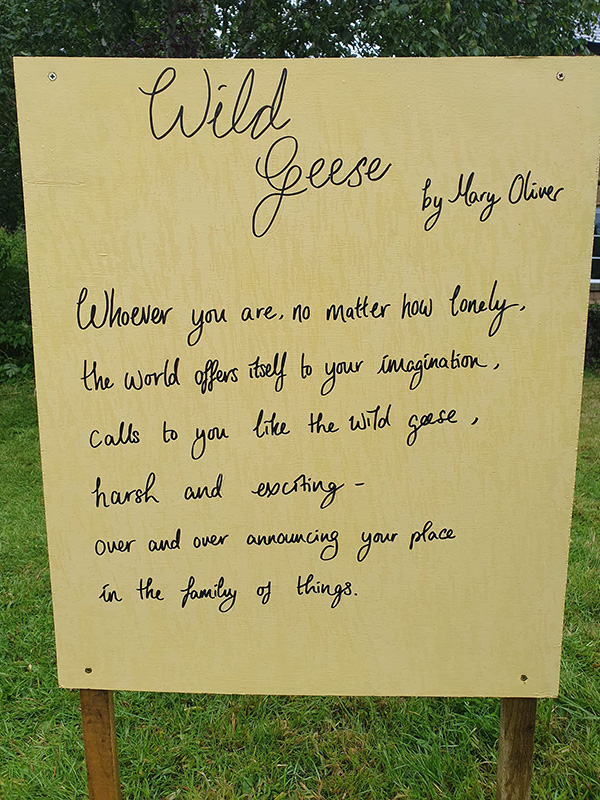 Wild
Geese
by Mary Oliver
Whoever you are, no matter how lonely,
the world offers itself to your imagination,
calls to you like the wild geese,
harsh and exciting -
over and over announcing your place
in the family of things.